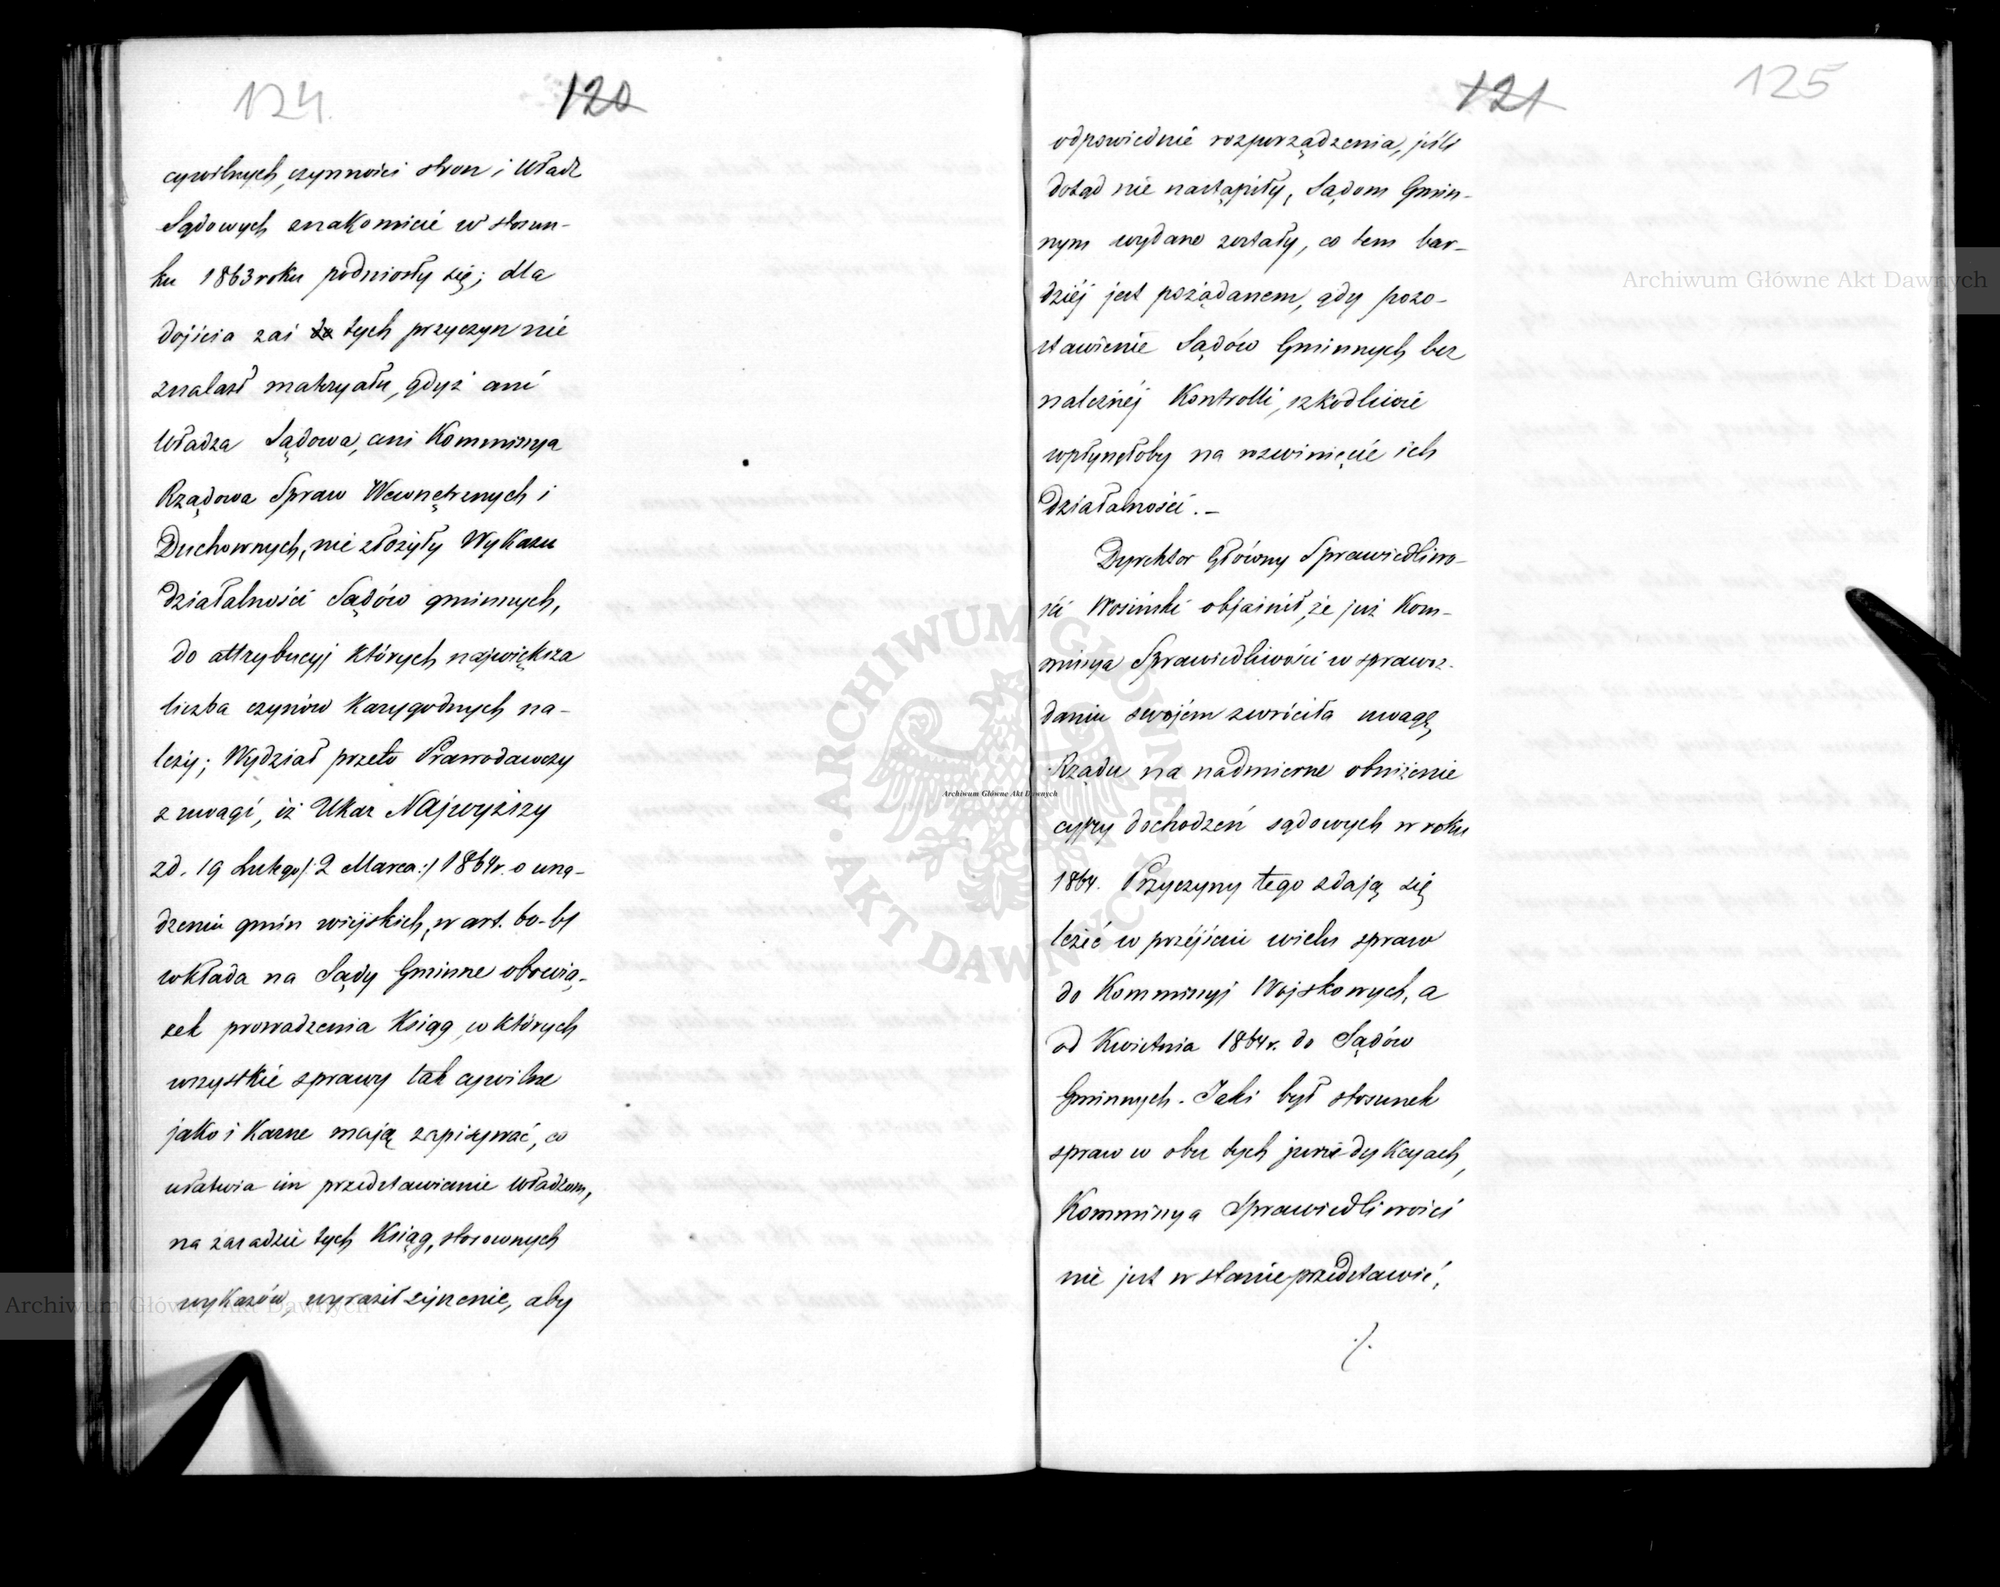 124. 120
cywilnych, czynności stron i Władz
Sądowych znakomicie w stosun-
ku 1863 roku podniosły się; dla
dojścia zaś do tych przyczyn nie
znalazł materyału, gdyż ani
Władza Sądowa, ani Kommissya
Rządowa Spraw Wewnętrznych i
Duchownych, nie złożyły Wykazu
działalności Sądów gminnych,
do attrybucyj których największa
liczba czynów Karygodnych na-
leży; Wydział przeto Prawodawczy
z uwagi, iż Ukaz Najwyższy
z d. 19 Lutego /: 2 Marca :/ 1864 r. o urzą-
dzeniu gmin wiejskich, w art. 60-61
wkłada na Sądy Gminne obowią-
zek prowadzenia Ksiąg, w których
wszystkie sprawy tak cywilne
jako i Karne mają zapisywać, co
ułatwia im przedstawienie Władzom,
na zasadzie tych Ksiąg, stosownych
wykazów, wyraził życzenie, aby
121 125
odpowiednie rozporządzenia, jeśli
dotąd nie nastąpiły, Sądom Gmin-
nym wydane zostały, co tem bar-
dziéj jest pożądanem, gdy pozo-
stawienie Sądów Gminnych bez
należnéj Kontrolli, szkodliwie
wpłynęłoby na rozwinięcie ich
działalności. –
Dyrektor Główny Sprawiedliwo-
ści Wosiński objaśnił, że już Kom-
missya Sprawiedliwości w sprawoz-
daniu swojém zwróciła uwagę
Rządu na nadmierne obniżenie
cyfry dochodzeń sądowych w roku
1864. Przyczyny tego zdają się
leżéć w przéjściu wielu spraw
do Kommissyj Wojskowych, a
od Kwietnia 1864 r. do Sądów
Gminnych. Jaki był stosunek
spraw w obu tych jurisdykcyach,
Kommissya Sprawiedliwości
nie jest w stanie przedstawić,
./.
Archiwum Główne Akt Dawnych
Archiwum Główne Akt Dawnych
Archiwum Główne Akt Dawnych
ARCHIWUM GŁÓWNE AKT DAWNYCH